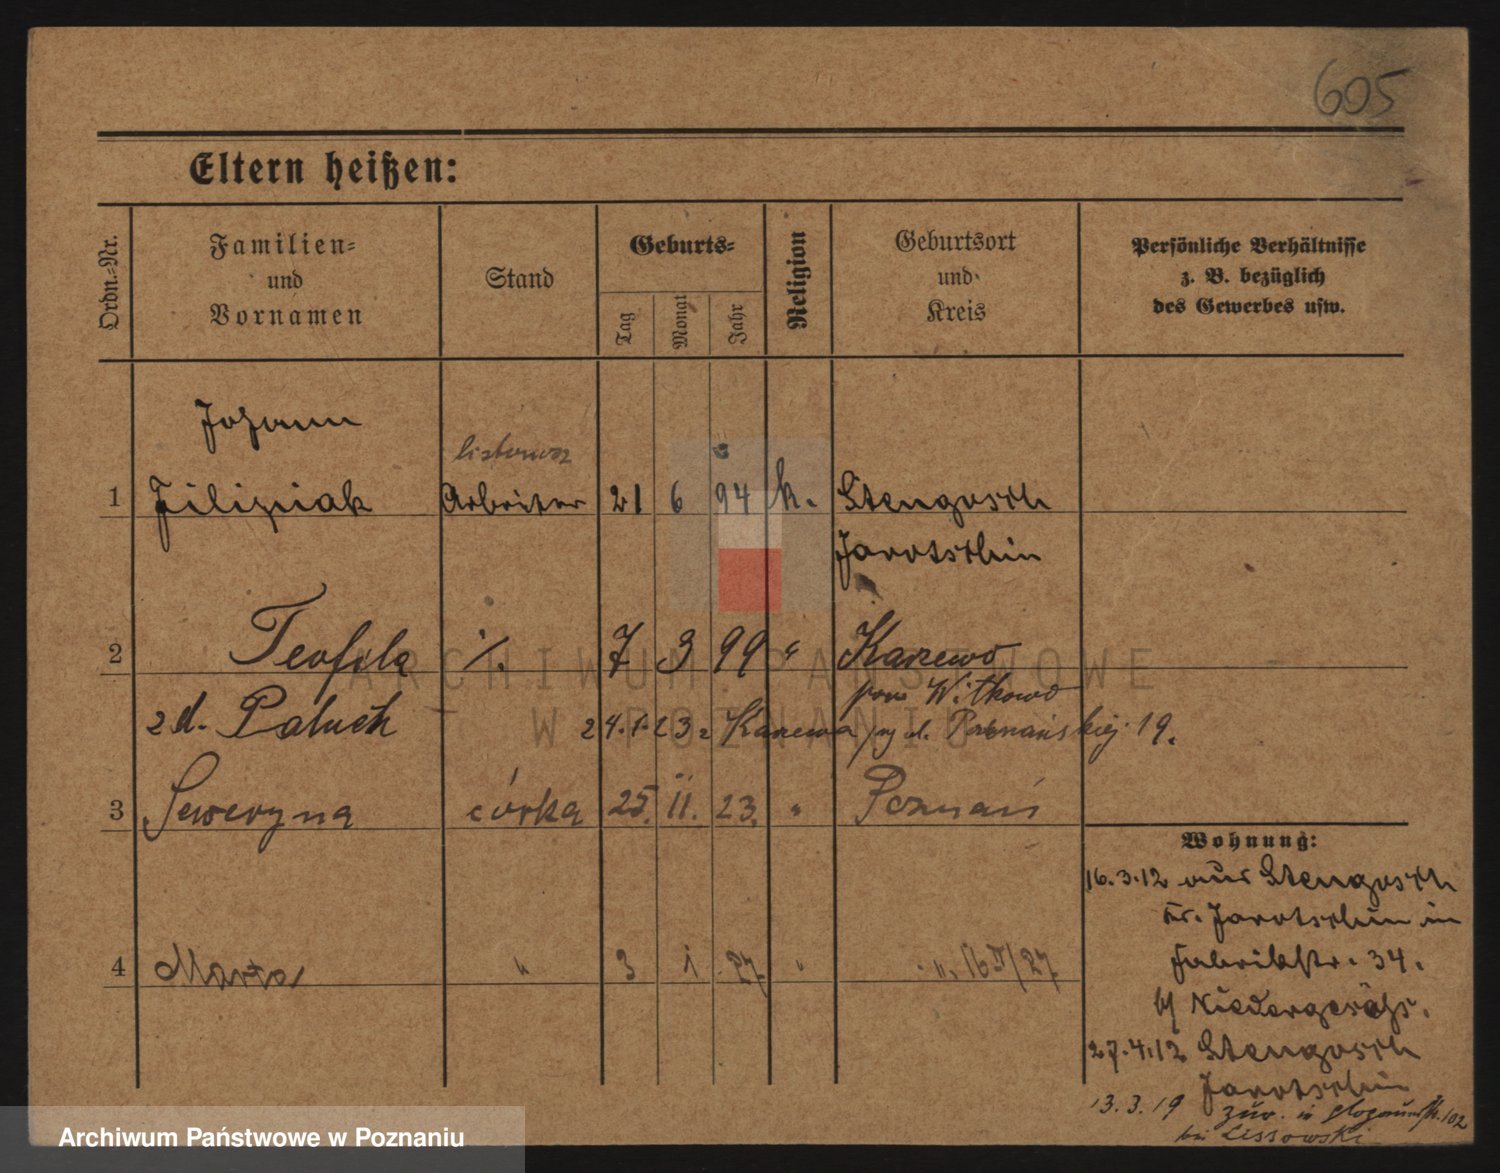 605
Eltern heißen:
Ordn.-Nr.
Familien- und Vornamen
Stand
Geburts-
Tag
Monat
Jahr
Religion
Geburtsort und Kreis
Persönliche Verhältnisse z. B. bezüglich des Gewerbes usw.
Johann
listonosz
1 Filipiak Arbeiter 21 6 94 k. Stengosch
Jarotschin
2 Teofila ./. 7 3 99 " Karzewo
pow Witkowo
z d. Paluch 24.1.23 z Karzewa Poznańskiej 19.
3 Seweryna córka 25. 11. 23. " Poznań
Wohnung:
16.3.12 aus Stengosch
Kr. Jarotschin in
Fabrikstr. 34.
4 Marta " 3 1 27 " " 16 II/27
b/
27.4.12 Stengosch
Jarotschin
13.3.19 zuv. in Glogauerstr. 102
bei Lissowski
ARCHIWUM PAŃSTWOWE
W POZNANIU
Archiwum Państwowe w Poznaniu